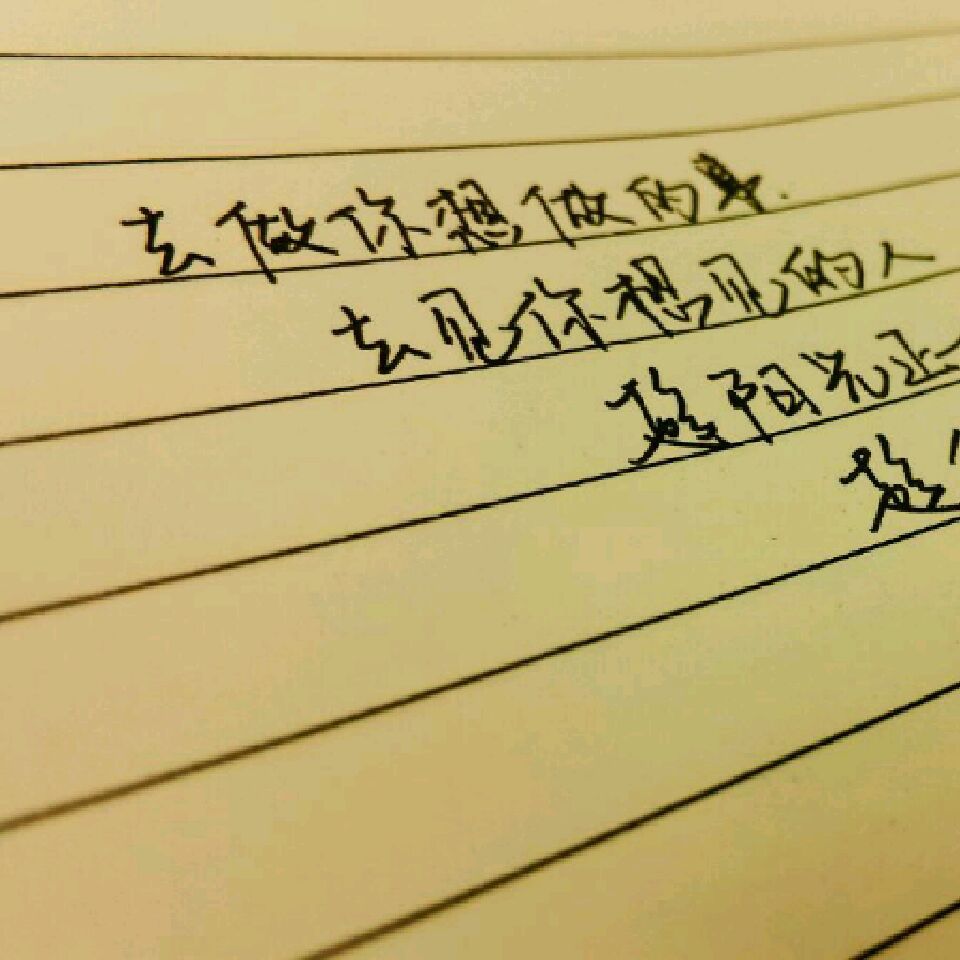 去做你想做的事.
去见你想见的人
趁阳光正
趁